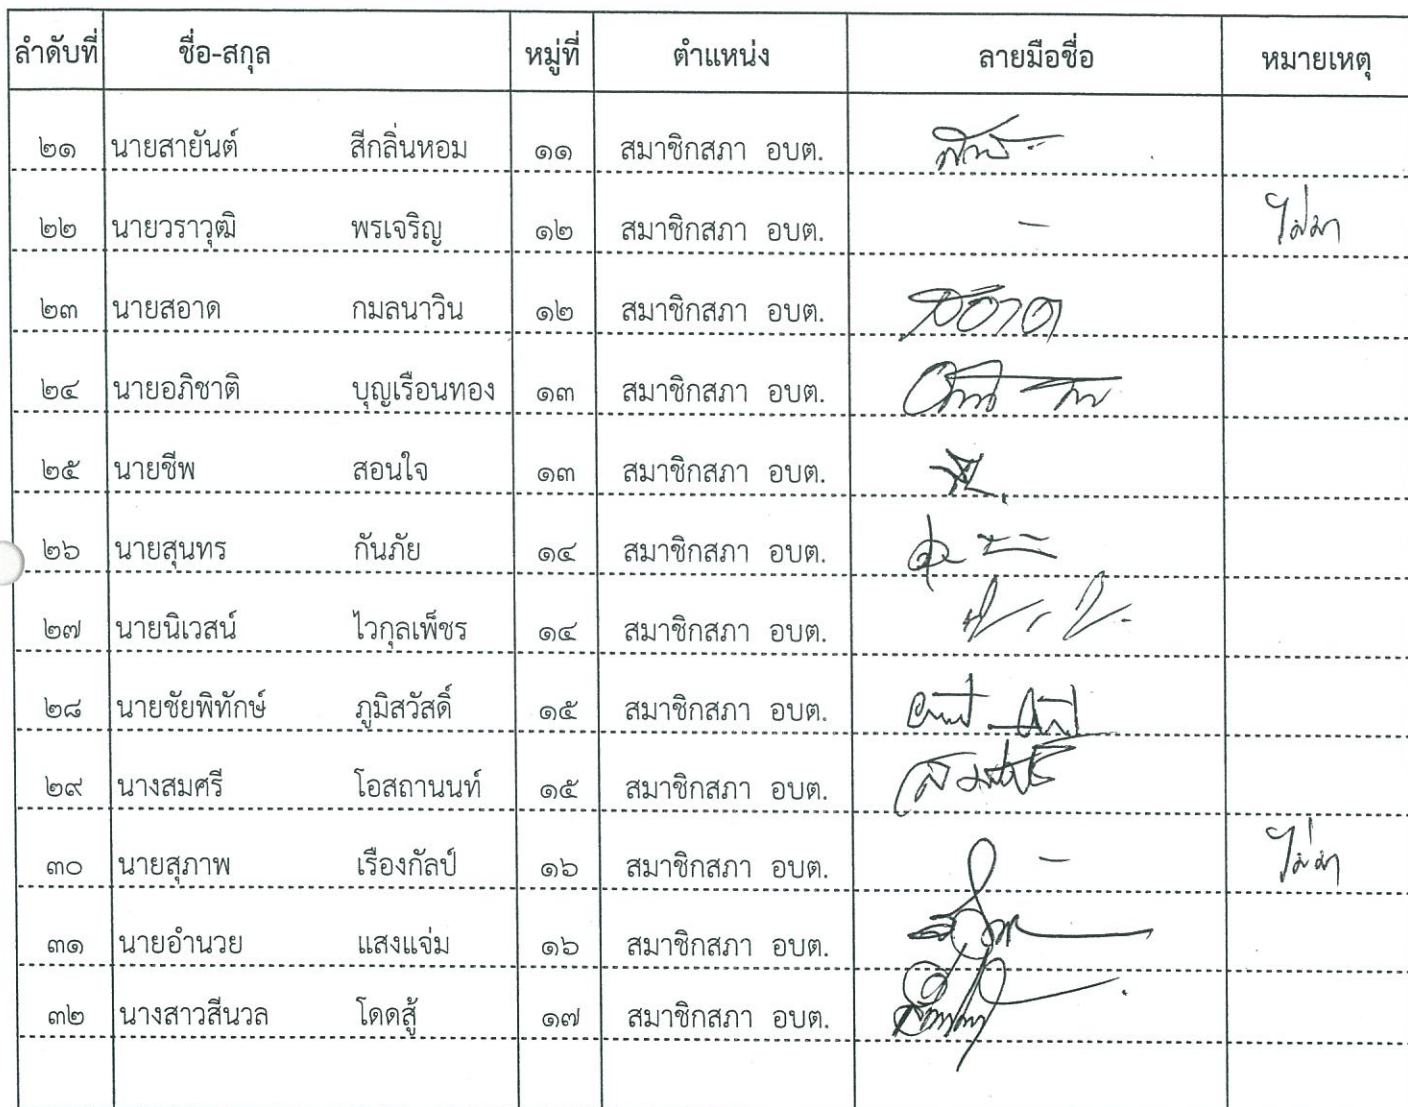 ลำดับที่ ชื่อ-สกุล หมู่ที่ ตำแหน่ง ลายมือชื่อ หมายเหตุ
๒๑ นายสายันต์ สีกลิ่นหอม ๑๑ สมาชิกสภา อบต.
๒๒ นายวราวุฒิ พรเจริญ ๑๒ สมาชิกสภา อบต. – ไม่มา
๒๓ นายสอาด กมลนาวิน ๑๒ สมาชิกสภา อบต. สอาด
๒๔ นายอภิชาติ บุญเรือนทอง ๑๓ สมาชิกสภา อบต.
๒๕ นายชีพ สอนใจ ๑๓ สมาชิกสภา อบต.
๒๖ นายสุนทร กันภัย ๑๔ สมาชิกสภา อบต.
๒๗ นายนิเวสน์ ไวกุลเพ็ชร ๑๔ สมาชิกสภา อบต.
๒๘ นายชัยพิทักษ์ ภูมิสวัสดิ์ ๑๕ สมาชิกสภา อบต.
๒๙ นางสมศรี โอสถานนท์ ๑๕ สมาชิกสภา อบต. สมศรี
๓๐ นายสุภาพ เรืองกัลป์ ๑๖ สมาชิกสภา อบต. – ไม่มา
๓๑ นายอำนวย แสงแจ่ม ๑๖ สมาชิกสภา อบต.
๓๒ นางสาวสีนวล โดดสู้ ๑๗ สมาชิกสภา อบต.